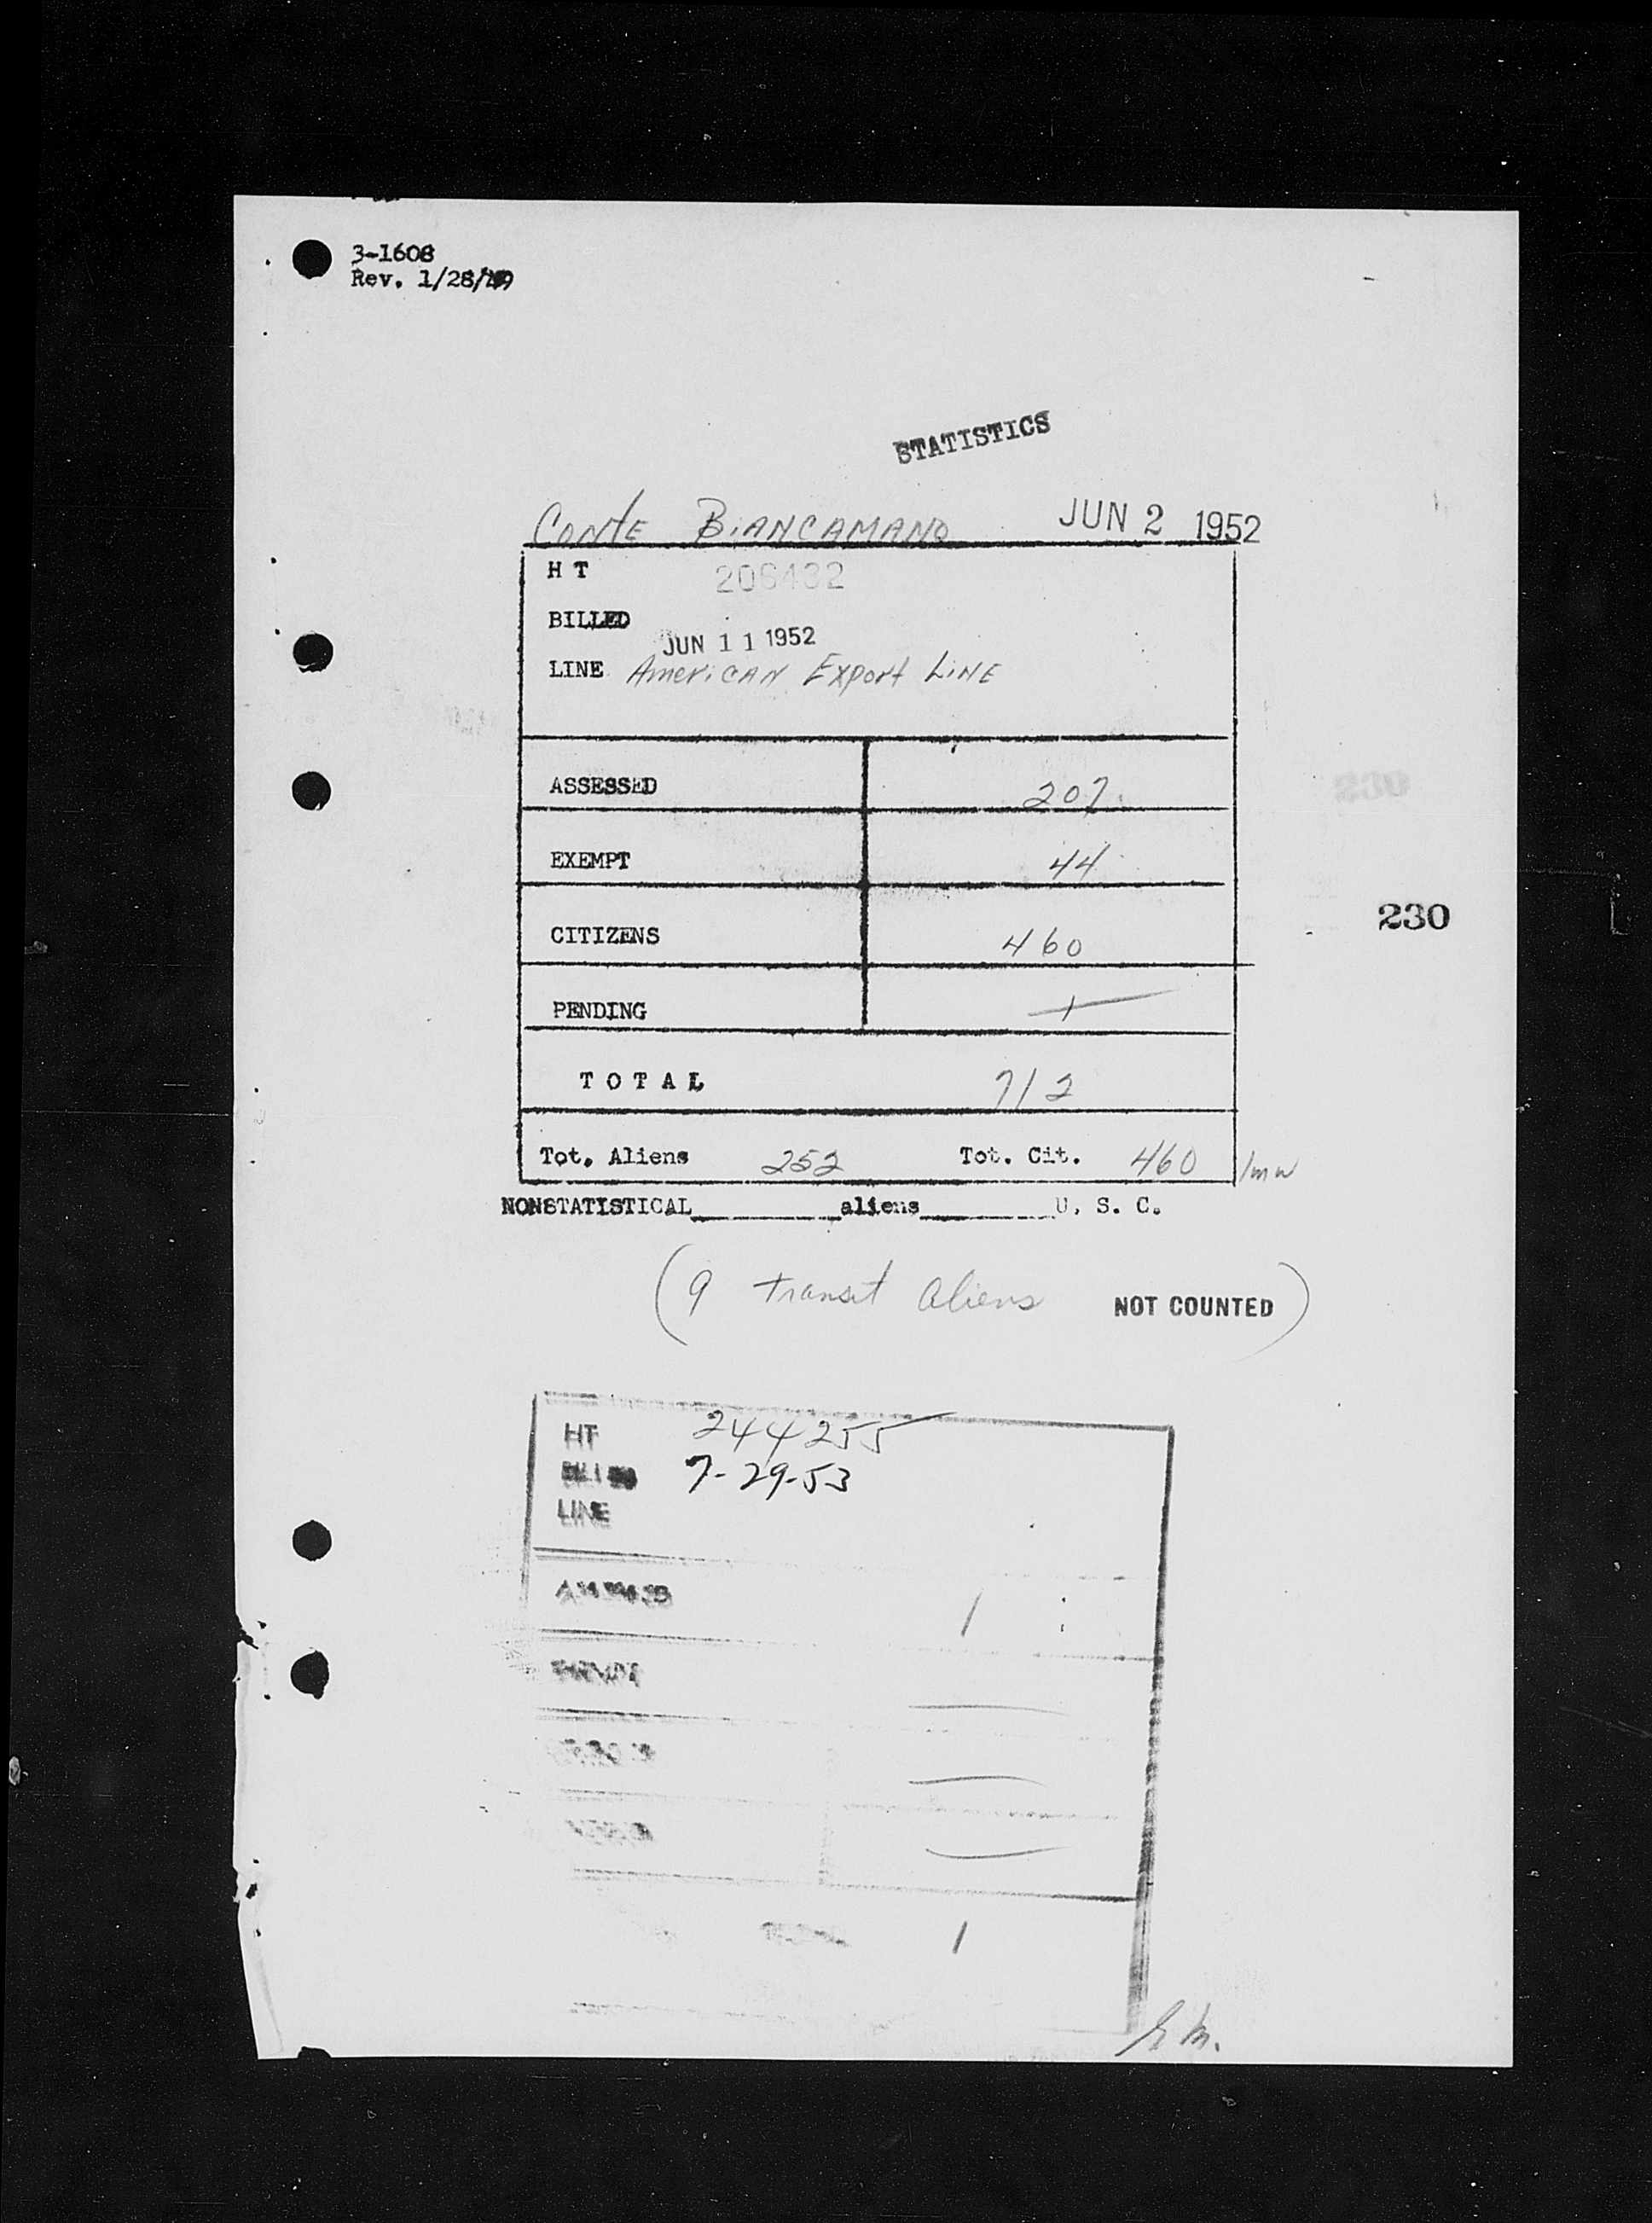 3-1608
Rev. 1/28/49
STATISTICS
CONTE BIANCAMANO JUN 2 1952
H T 206432
BILLED
JUN 11 1952
LINE American Export Line
ASSESSED 207
EXEMPT 44
230
CITIZENS 460
PENDING 1
TOTAL 712
Tot. Aliens 252 Tot. Cit. 460 /mw
NONSTATISTICAL aliens U. S. C.
(9 transit aliens NOT COUNTED)
HT 244255
BILLED 7-29-53
LINE
1
1